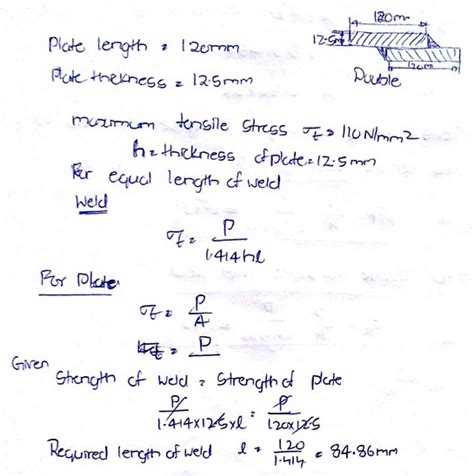 120mm
12.5mm
120m
Double
Plate length = 120mm
Plate thickness = 12.5mm
maximum tensile stress σt = 110N/mm2
h = thickness of plate = 12.5mm
For equal length of weld
Weld
σt = P / 1.414hl
For Plate
σt = P / A
P
Given
Strength of weld = Strength of plate
P / 1.414x12.5xl = P / 120x12.5
Required length of weld l = 120 / 1.414 = 84.86mm